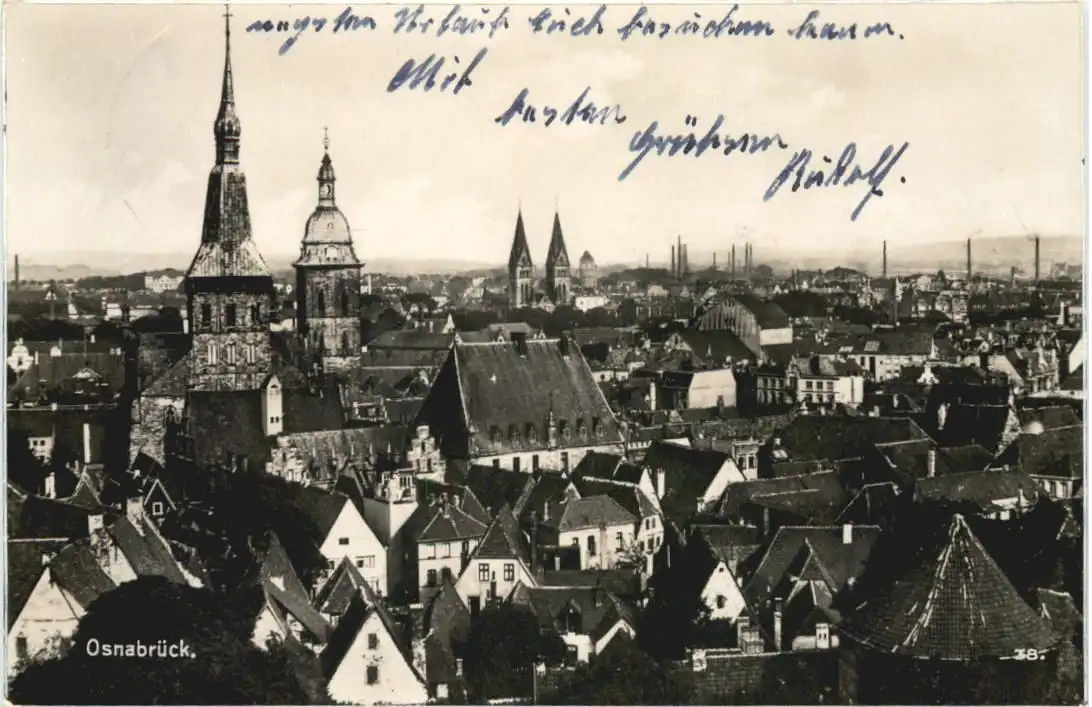 nächsten Urlaub Euch besuchen kann.
Mit
besten
Grüßen
Rudolf.
Osnabrück.
38.